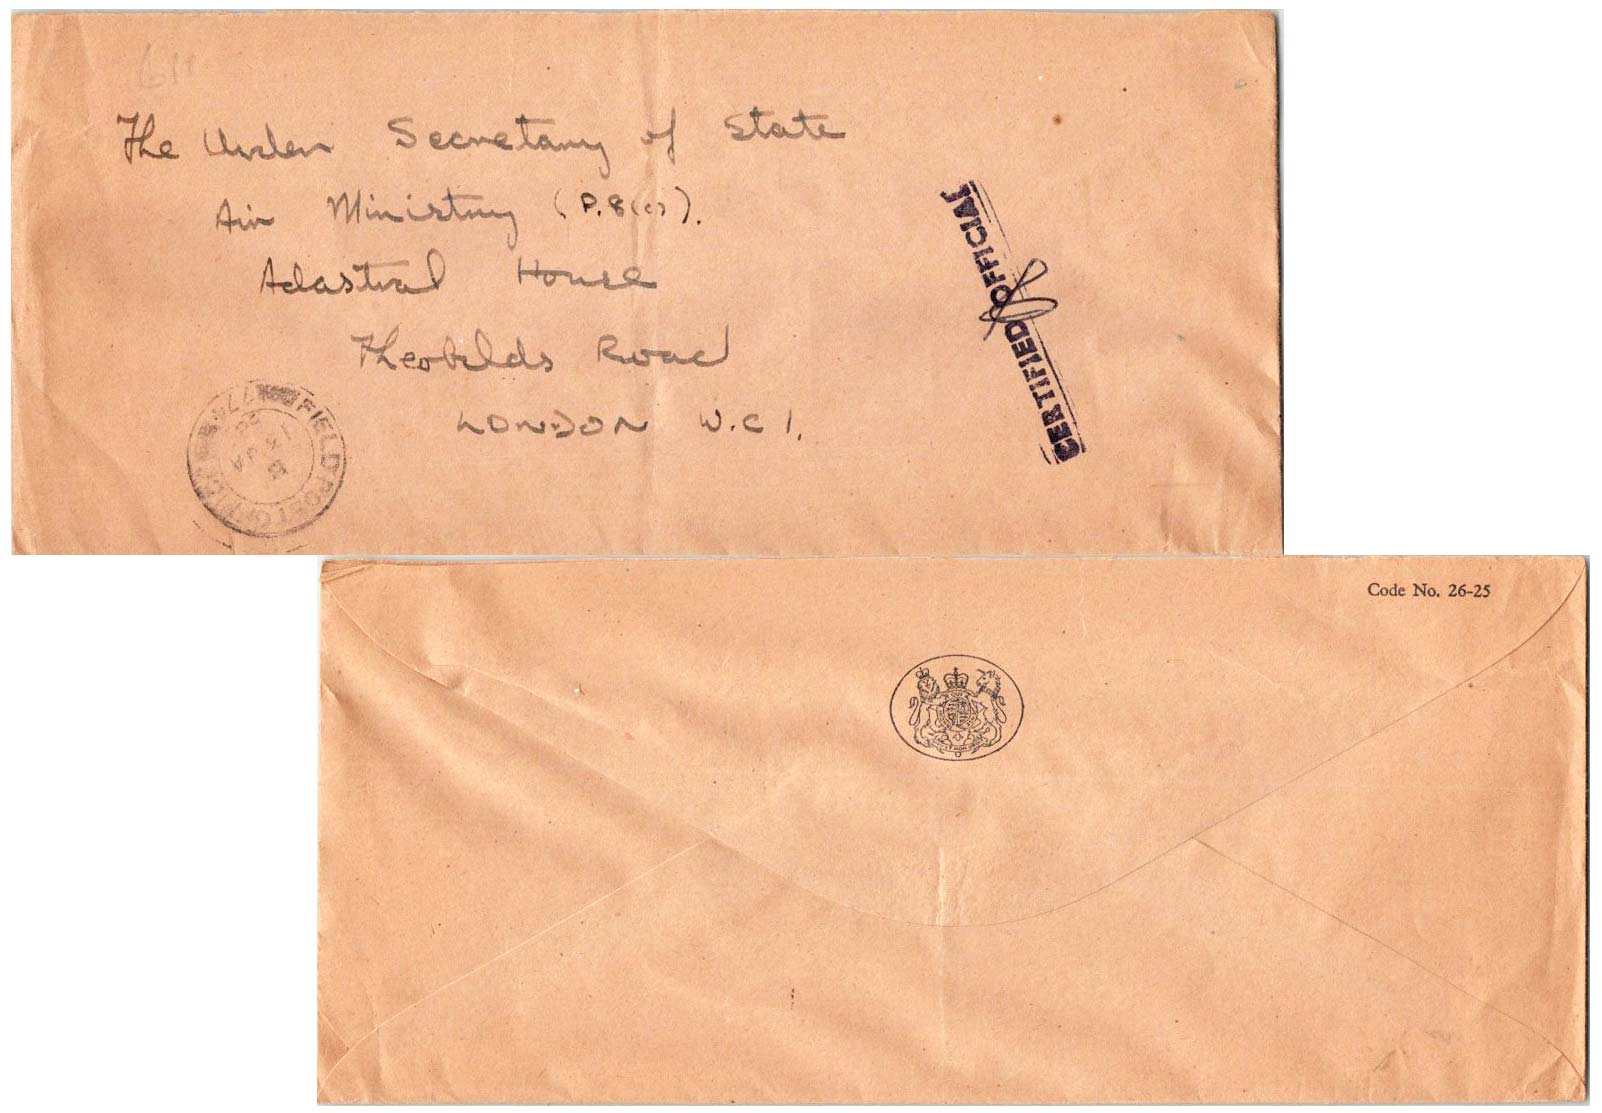 611
The Under Secretary of State
Air Ministry (P.8(c)).
Adastral House
Theobalds Road
LONDON W.C 1.
CERTIFIED OFFICIAL
FIELD POST OFFICE
Code No. 26-25